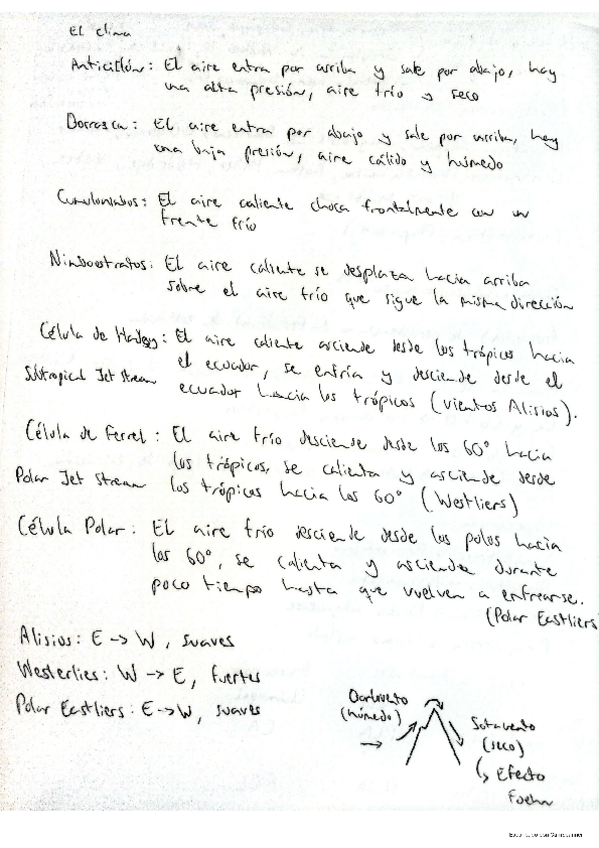 El clima
Anticiclón: El aire entra por arriba y sale por abajo, hay
una alta presión, aire frío y seco
Borrasca: El aire entra por abajo y sale por arriba, hay
una baja presión, aire cálido y húmedo
Cumulonimbos: El aire caliente choca frontalmente con un
frente frío
Nimboestratos: El aire caliente se desplaza hacia arriba
sobre el aire frío que sigue la misma dirección
Célula de Hadley: El aire caliente asciende desde los trópicos hacia
el ecuador, se enfría y desciende desde el
Subtropical Jet Stream
ecuador hacia los trópicos (vientos Alisios).
Célula de Ferrel: El aire frío desciende desde los 60° hacia
los trópicos, se calienta y asciende desde
Polar Jet Stream
los trópicos hacia los 60° (Westliers)
Célula Polar: El aire frío desciende desde los polos hacia
los 60°, se calienta y asciende durante
poco tiempo hasta que vuelven a enfrearse.
(Polar Eastliers)
Alisios: E -> W, suaves
Westerlies: W -> E, fuertes
Polar Eastliers: E -> W, suaves
Barlovento
(húmedo)
Sotavento
(seco)
Efecto
Foehn